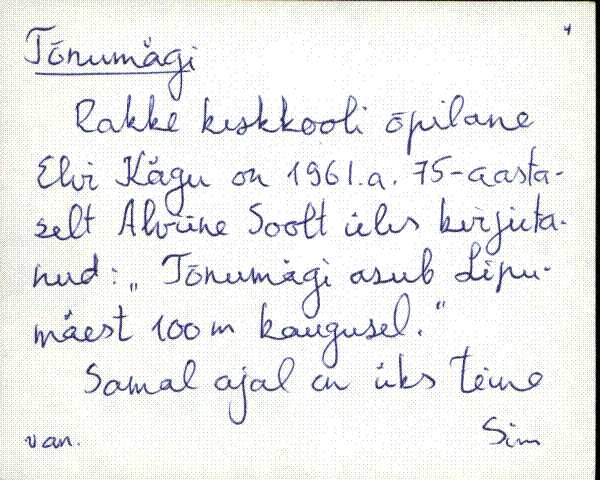 4
Tõnumägi
Rakke keskkooli õpilane
Elvi Kägu on 1961.a. 75-aasta-
selt Alviine Soolt üles kirjuta-
nud: „Tõnumägi asub Lipu-
mäest 100 m kaugusel.“
Samal ajal on üks teine
van. Sim